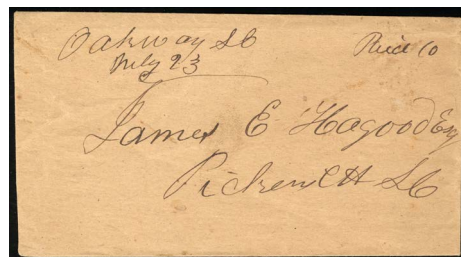 Oakway S C
July 23
Paid 10
James E Hagood Esq
Pickens C H S C